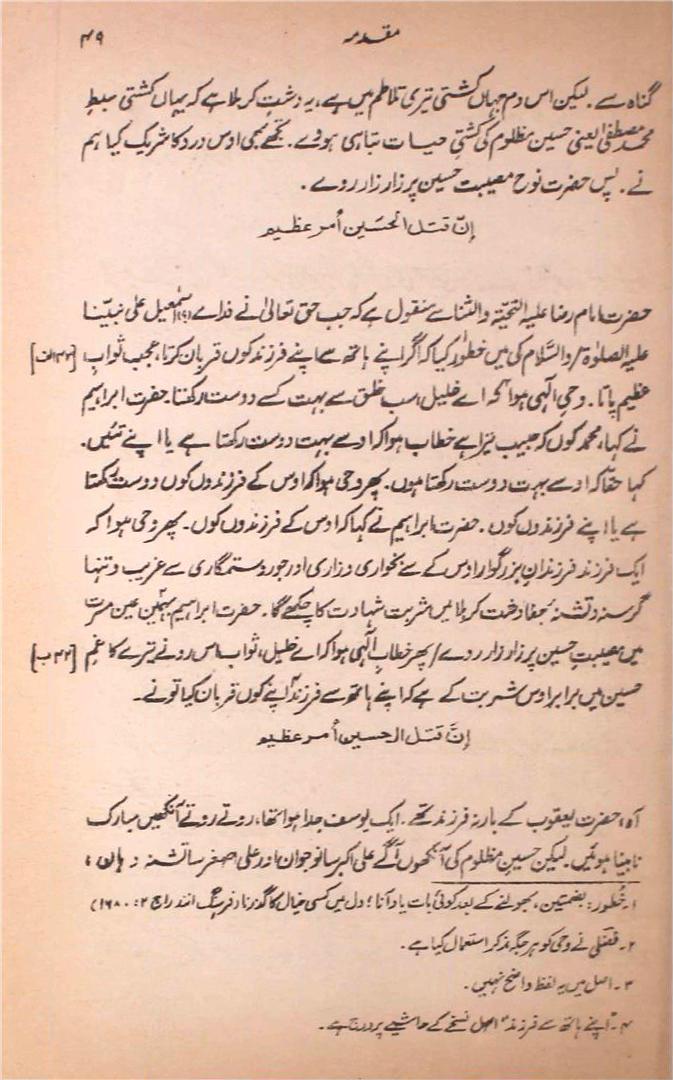 مقدمہ
۴۹
گناہ سے۔ لیکن اس دم جہاں کشتی تیری تلاطم میں ہے، یہ دشتِ کربلا ہے کہ یہاں کشتی سبطِ
محمد مصطفیٰ یعنی حسین مظلوم کی کشتیِ حیات تباہی ہووے۔ تجھے بھی اوس درد کا شریک کیا ہم
نے۔ پس حضرت نوح مصیبتِ حسین پر زار زار روے۔
إنّ قتل الحسَین أمر عظیم
حضرت امام رضا علیہ التحیّۃ والثنا سے منقول ہے کہ جب حق تعالیٰ نے فداے (؟) اسمٰعیل علیٰ نبیّنا
علیہ الصلوٰۃ / والسّلام کی میں خطور کیا کہ اگر اپنے ہاتھ سے اپنے فرزند کوں قربان کرتا، عجب ثوابِ [۴۲ الف]
عظیم پاتا۔ وحیِ الٰہی ہوا کہ اے خلیل، سب خلق سے بہت کسے دوست رکھتا۔ حضرت ابراہیم
نے کہا، محمد کوں کہ حبیب تیرا ہے خطاب ہوا کہ اوسے بہت دوست رکھتا ہے یا اپنے تئیں۔
کہا حقّا کہ اوسے بہت دوست رکھتا ہوں۔ پھر وحی ہوا کہ اوس کے فرزندوں کوں دوست رکھتا
ہے یا اپنے فرزندوں کوں۔ حضرت ابراہیم نے کہا کہ اوس کے فرزندوں کوں۔ پھر وحی ہوا کہ
ایک فرزند فرزندانِ بزرگوار اوس کے سے بخواری و زاری اور جور و ستمگاری سے غریب و تنہا
گرسنہ و تشنہ بجفا دشتِ کربلا میں شربت شہادت کا چکھے گا۔ حضرت ابراہیم عین مسرت
میں مصیبتِ حسین پر زار زار روے / پھر خطابِ الٰہی ہوا کہ اے خلیل، ثواب اس رونے تیرے کا غمِ [۴۲ ب]
حسین میں برابر اوس شربت کے ہے کہ اپنے ہاتھ سے فرزند اپنے کوں قربان کیا تونے۔
إنَّ قتل الحسین أمر عظیم
آہ، حضرت یعقوب کے بارہ فرزند تھے۔ ایک یوسف جدا ہوا تھا، روتے روتے آنکھیں مبارک
نابینا ہوئیں۔ لیکن حسینِ مظلوم کی آنکھوں آگے علی اکبر سا نوجوان اور علی اصغر سا تشنہ دہان،
۱۔ خُطور: بضمتین، بھولنے کے بعد کوئی بات یاد آنا؛ دل میں کسی خیال کا گذرنا (فرہنگ انند راج ۲: ۱۶۸۰)
۲۔ فضلی نے وحی کو ہر جگہ مذکر استعمال کیا ہے۔
۳۔ اصل میں یہ لفظ واضح نہیں۔
۴۔ "اپنے ہاتھ سے فرزند" اصل نسخے کے حاشیے پر درج ہے۔